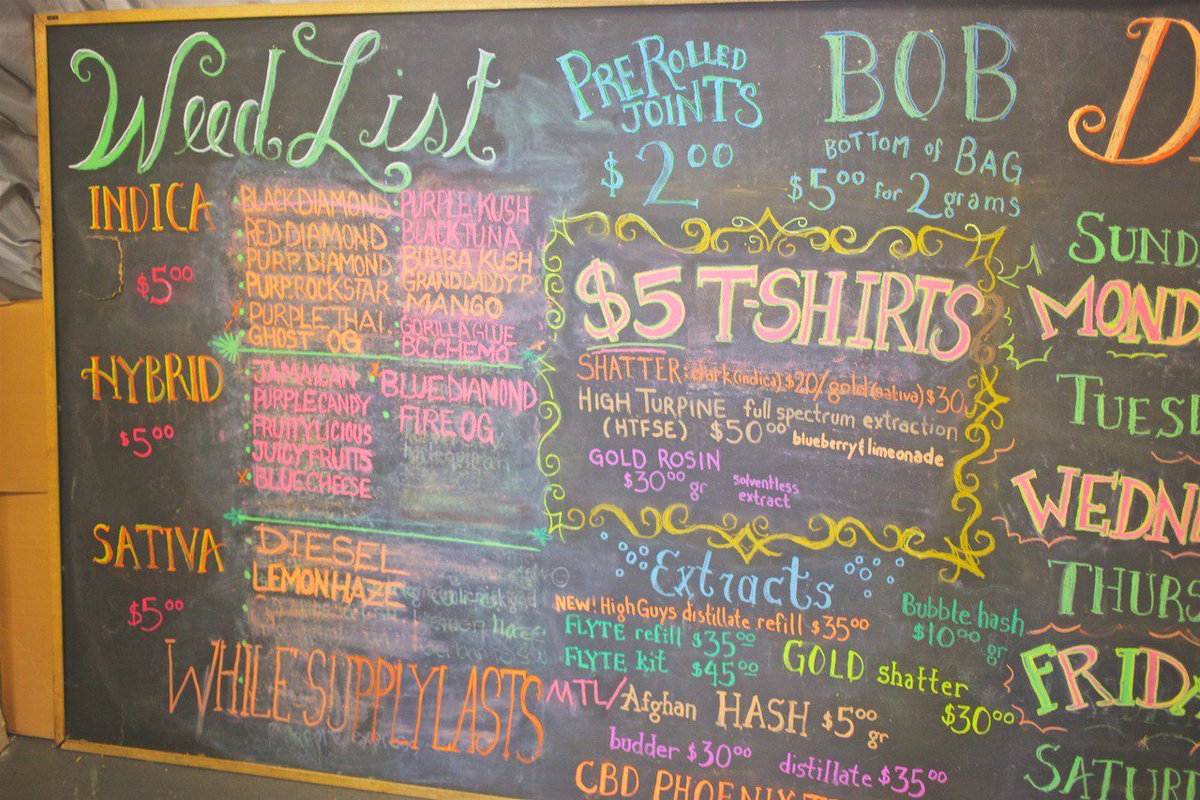 Weed List
INDICA
$5.00
BLACK DIAMOND
RED DIAMOND
PURP DIAMOND
PURP ROCKSTAR
PURPLE THAI
GHOST OG
PURPLE KUSH
BLACK TUNA
BUBBA KUSH
GRANDADDY P.
MANGO
GORILLA GLUE
BC CHEMO
HYBRID
$5.00
JAMAICAN
PURPLE CANDY
FRUITYLICIOUS
JUICY FRUITS
BLUE CHEESE
BLUE DIAMOND
FIRE OG
SATIVA
$5.00
DIESEL
LEMON HAZE
WHILE SUPPLY LASTS
PREROLLED
JOINTS
$2.00
BOB
BOTTOM of BAG
$5.00 for 2 grams
$5 T-SHIRTS
SHATTER: dark (indica) $20/gold (sativa) $30
HIGH TURPINE full spectrum extraction
(HTFSE) $50.00 blueberry & limeonade
GOLD ROSIN
$30.00 gr
solventless
extract
Extracts
NEW! HighGuys distillate refill $35.00
FLYTE refill $35.00
FLYTE kit $45.00
Bubble hash
$10.00 gr
GOLD shatter
$30.00
MTL/Afghan HASH $5.00 gr
budder $30.00 distillate $35.00
CBD PHOENIX
SUND
MOND
TUES
WEDN
THURS
FRID
SATUR